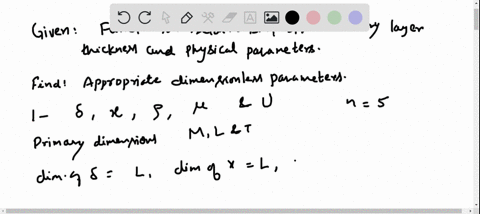 Given: layer
thickness and physical parameters.
Find! Appropriate dimensionless parameters.
1- δ, x, ρ, μ & U n = 5
Primary dimensions M, L & T
dim. of δ = L, dim of x = L,